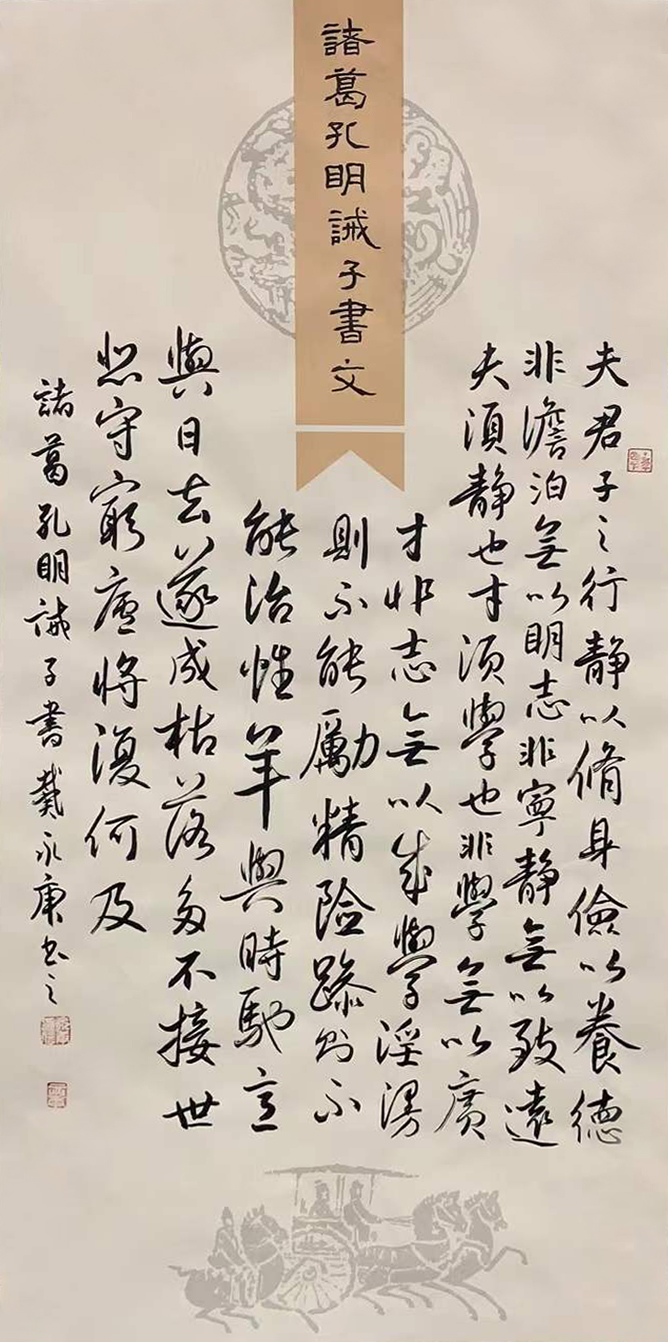 諸葛孔明誡子書文
夫君子之行静以脩身儉以養德
非澹泊無以明志非寧静無以致遠
夫須静也才須學也非學無以廣
才非志無以成學淫漫
則不能勵精險躁則不
能治性年與時馳意
與日去遂成枯落多不接世
悲守窮廬將復何及
諸葛孔明誡子書永書之